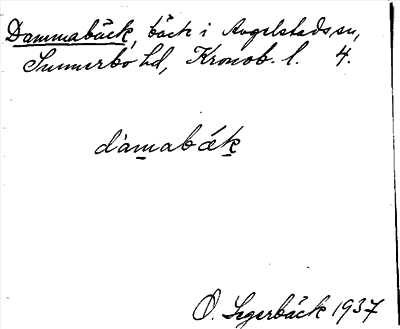 Dammabäck, bäck i Angelstads sn,
Sunnerbo hd, Kronob. l. 4.
dàmabák
O. Segerbäck 1937